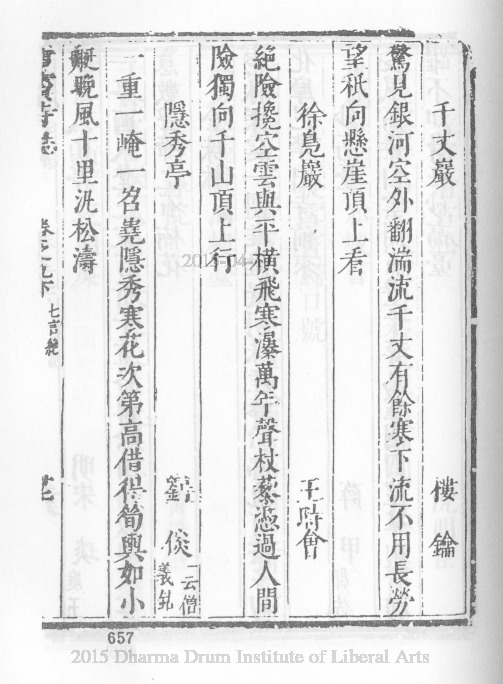 千丈巖 樓鑰
驚見銀河空外翻湍流千丈有餘寒下流不用長勞
望秖向懸崖頂上看
徐鳧巖 王時會
絶險攙空雲與平橫飛寒瀑萬年聲杖藜慿過人間
險獨向千山頂上行
隱秀亭 劉倓 云僧義銛
一重一崦一岧嶤隱秀寒花次第高借得筍輿如小
艇晚風十里汎松濤
雪竇寺誌 卷之九下 七言絶
657
2015 Dharma Drum Institute of Liberal Arts